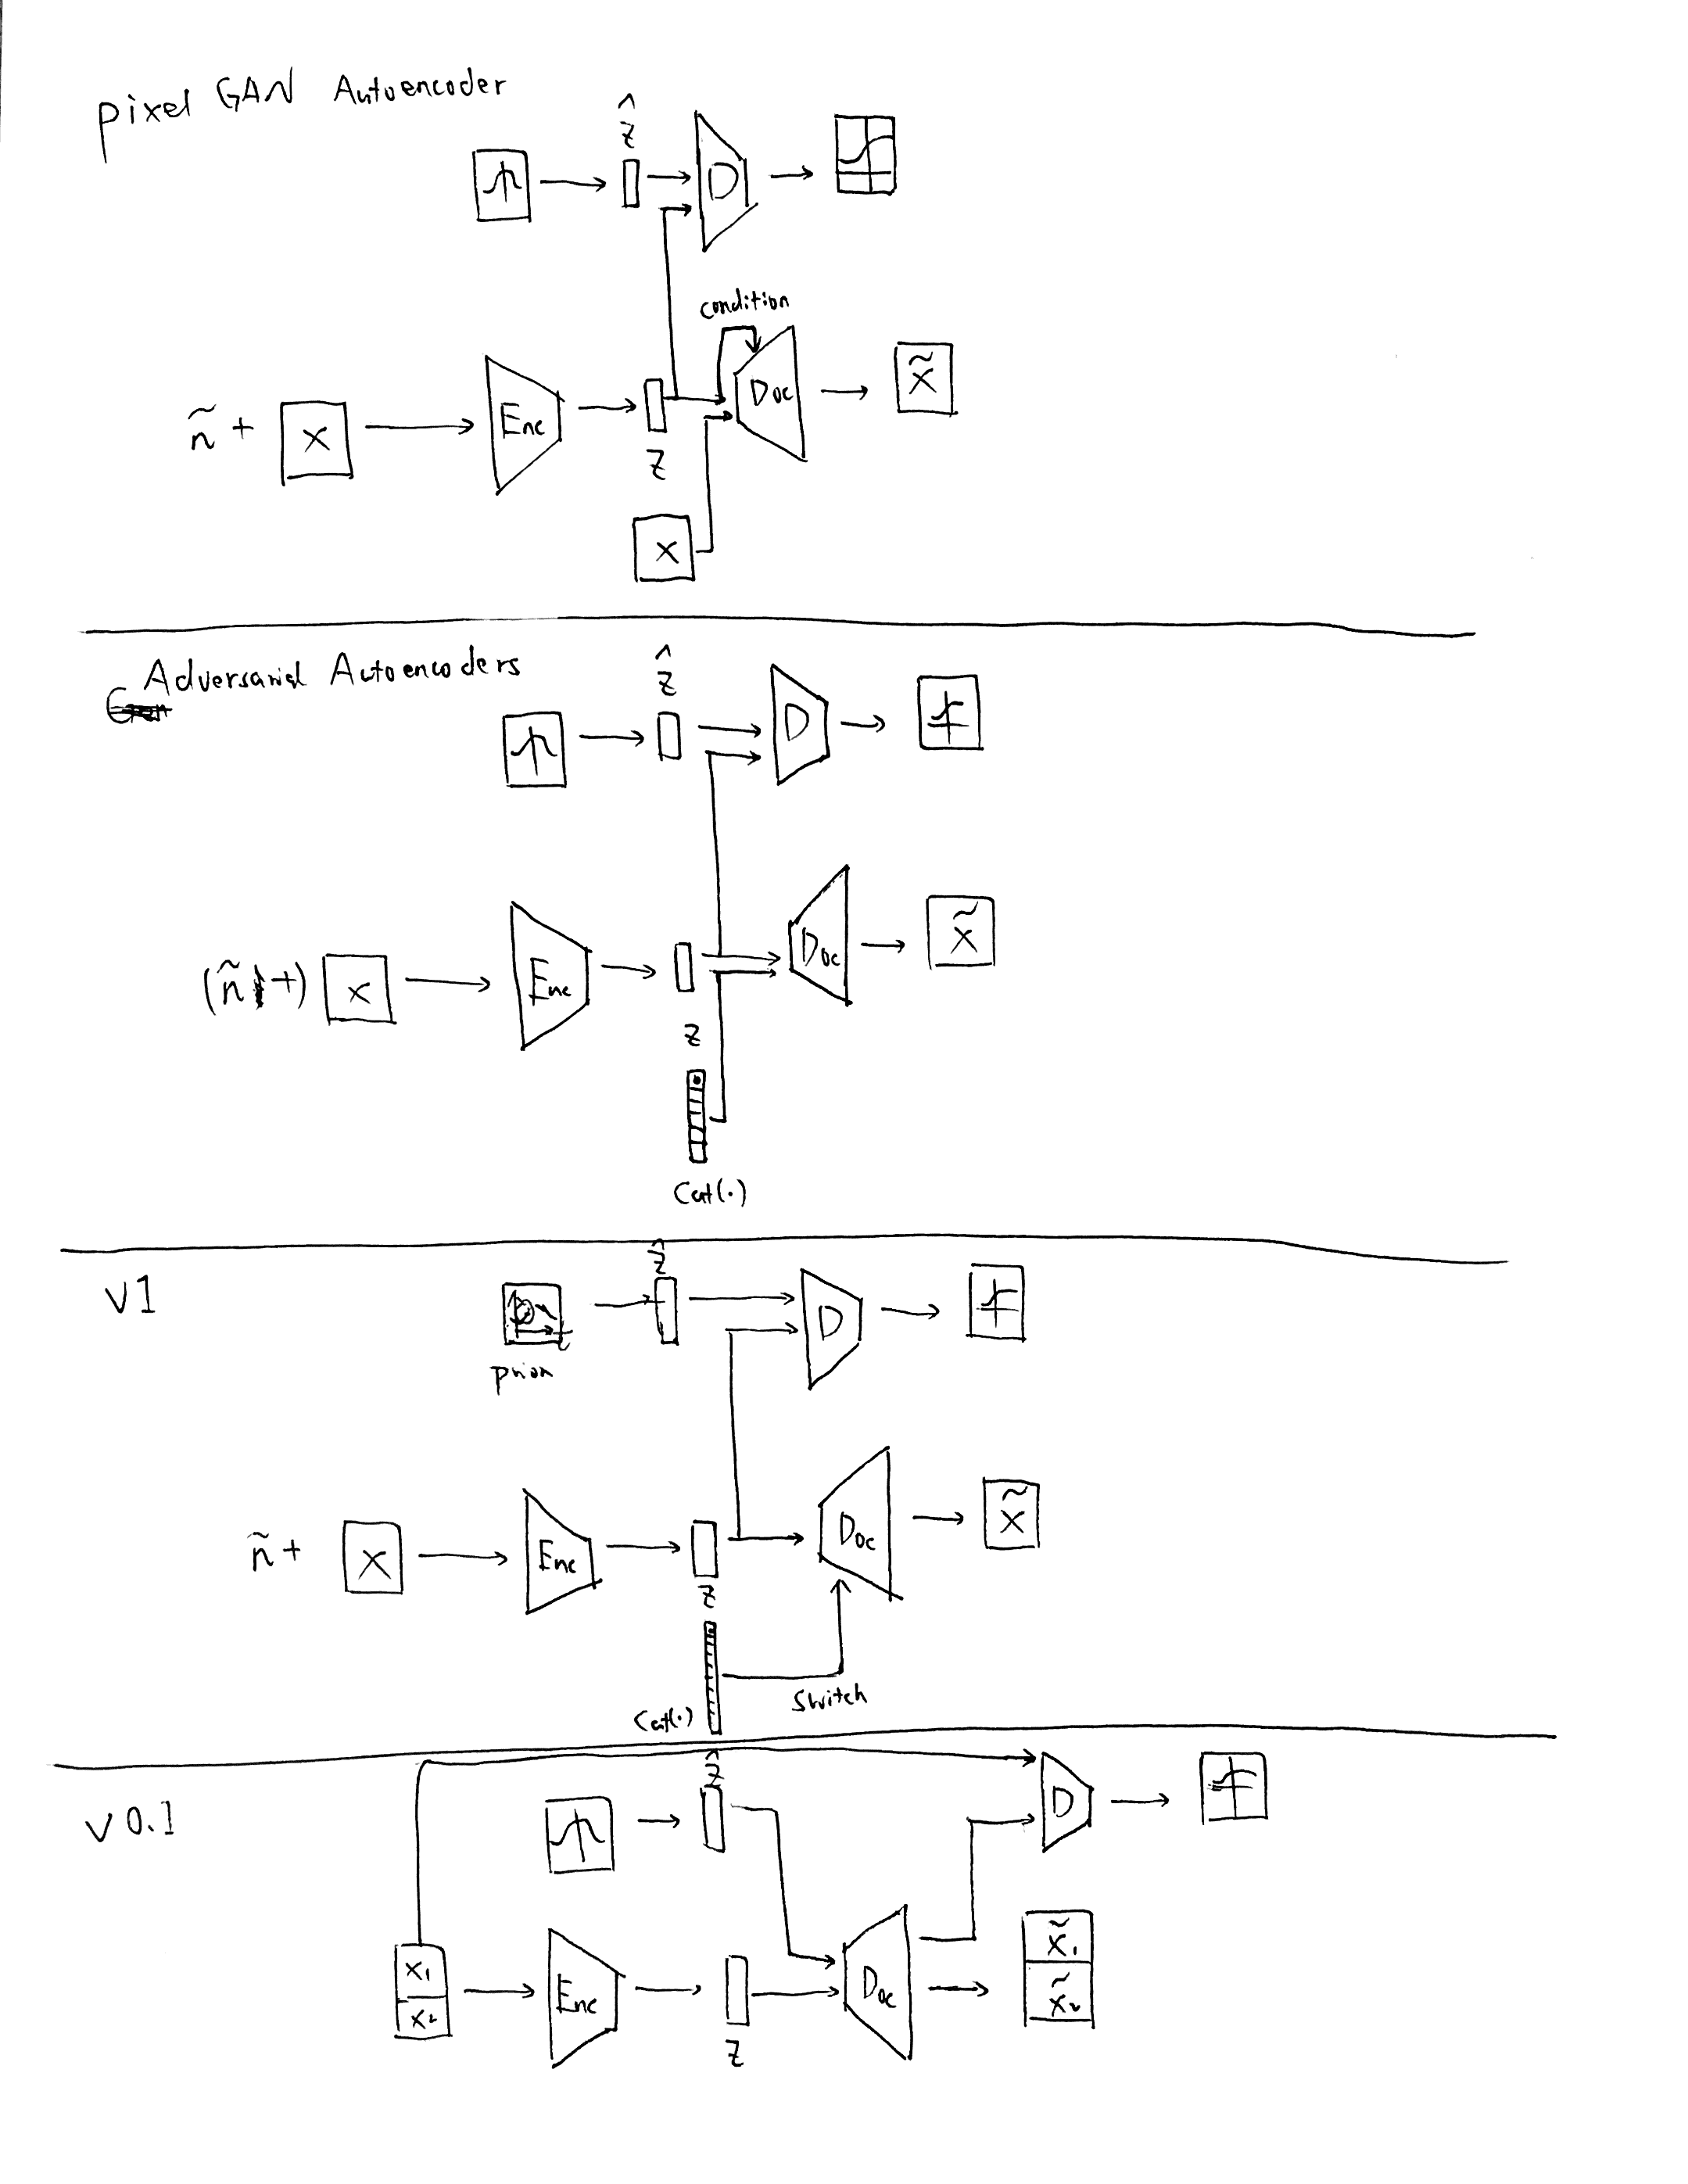 pixel GAN Autoencoder
ẑ
D
condition
ñ + x
Enc
z
Doc
x̃
x
Adversarial Autoencoders
ẑ
D
(ñ +) x
Enc
z
Doc
x̃
Cat(·)
v1
ẑ
D
prior
ñ + x
Enc
z
Doc
x̃
Cat(·)
Switch
v 0.1
ẑ
D
x₁
x₂
Enc
z
Doc
x̃₁
x̃₂